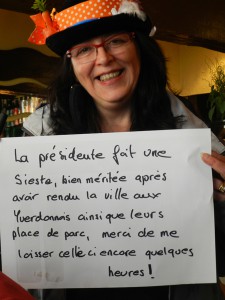 La présidente fait une
Sieste, bien méritée après
avoir rendu la ville aux
Yverdonnois ainsi que leurs
place de parc, merci de me
laisser celle ci encore quelques
heures!